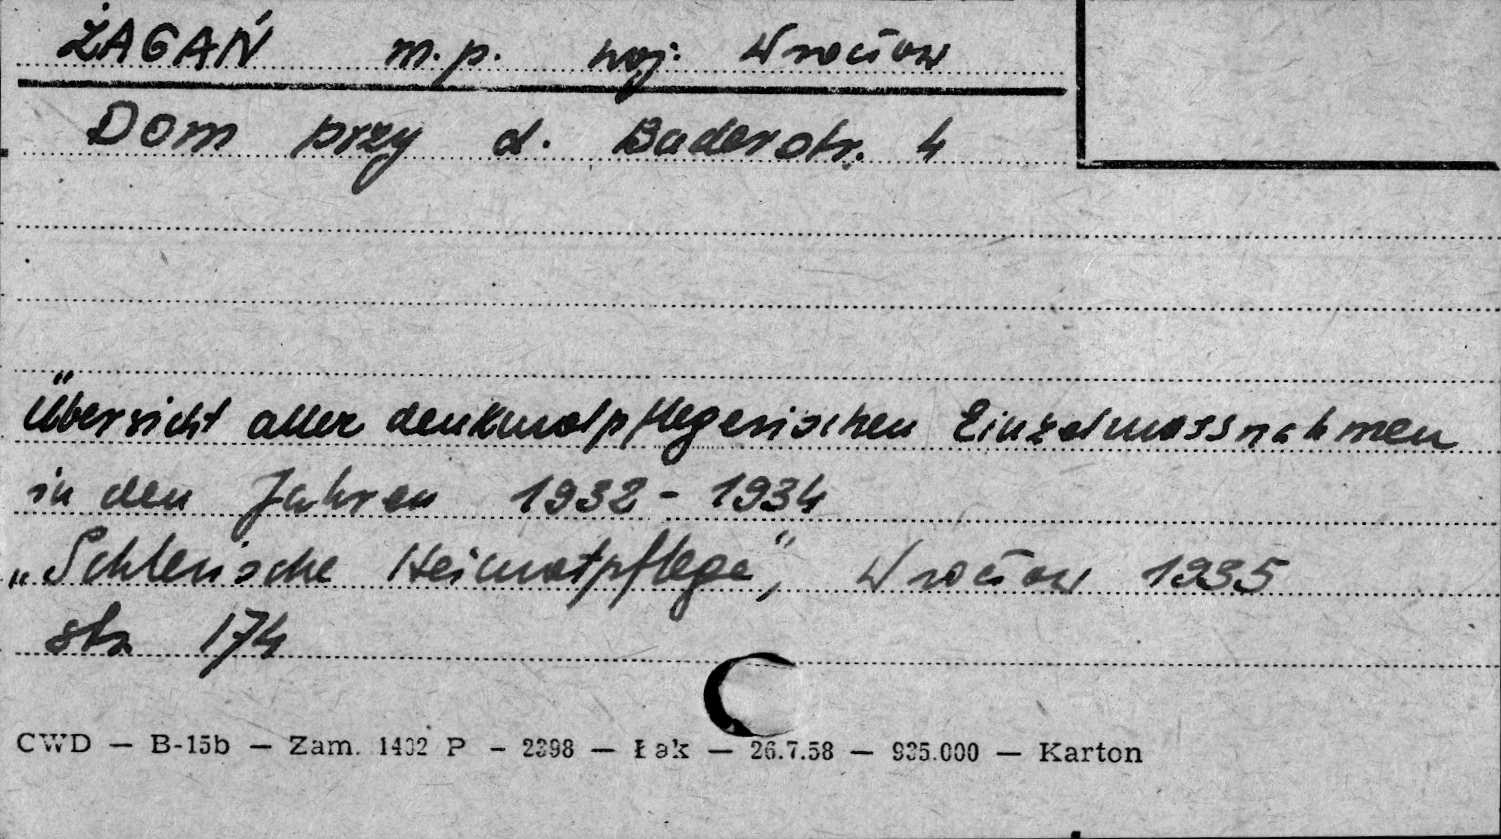 ŻAGAŃ m.p. woj. Wrocław
Dom przy d. Baderstr. 4
Übersicht aller denkmalpflegerischen Einzelmassnahmen
in den Jahren 1932 - 1934
„Schlesische Heimatpflege", Wrocław 1935
str. 174
CWD — B-15b — Zam. 1402 P - 2398 — Łak — 26.7.58 — 935.000 — Karton